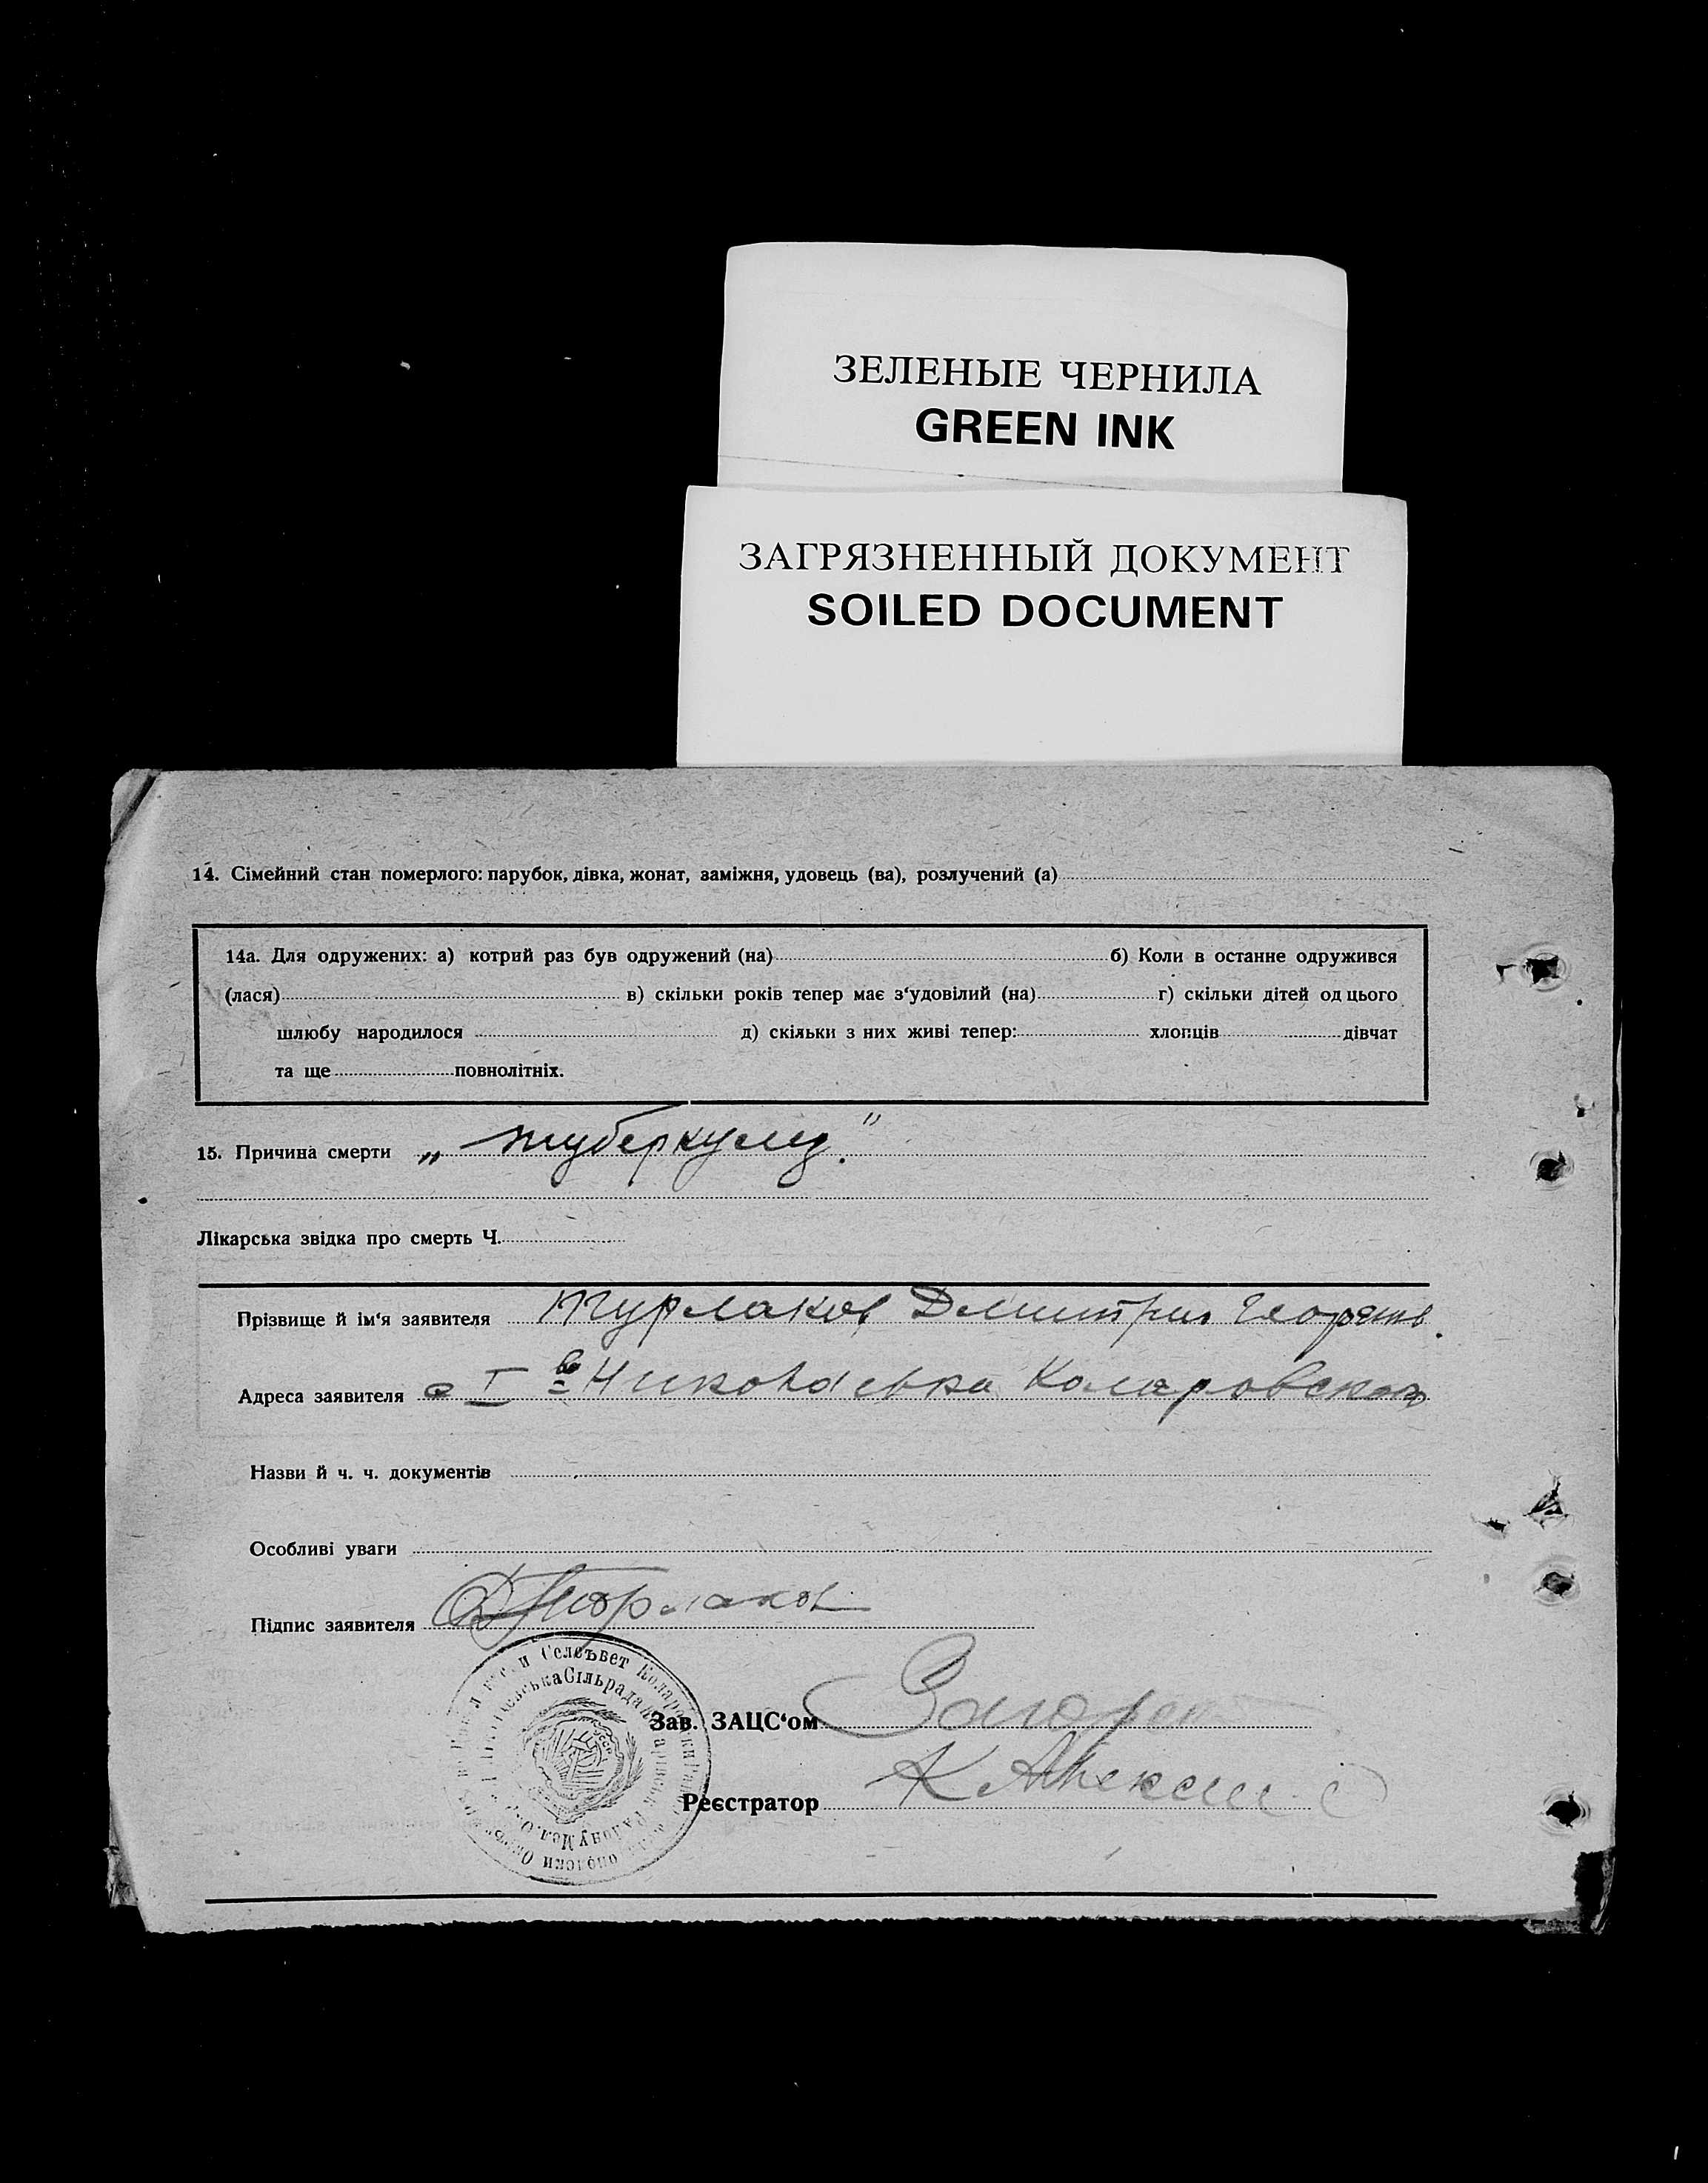 ЗЕЛЕНЫЕ ЧЕРНИЛА
GREEN INK
ЗАГРЯЗНЕННЫЙ ДОКУМЕНТ
SOILED DOCUMENT
14. Сімейний стан померлого: парубок, дівка, жонат, заміжня, удовець (ва), розлучений (а)
14а. Для одружених: а) котрий раз був одружений (на) б) Коли в останне одружився
(лася) в) скільки років тепер має з‘удовілий (на) г) скільки дітей од цього
шлюбу народилося д) скільки з них живі тепер: хлопців дівчат
та ще повнолітніх.
15. Причина смерти „туберкулез."
Лікарська звідка про смерть Ч.
Прізвище й ім‘я заявителя Турлаков Дмитрий
Адреса заявителя с I Николаевка Коларовског
Назви й ч. ч. документів
Особливі уваги
Підпис заявителя
Зав. ЗАЦС‘ом
Реєстратор К